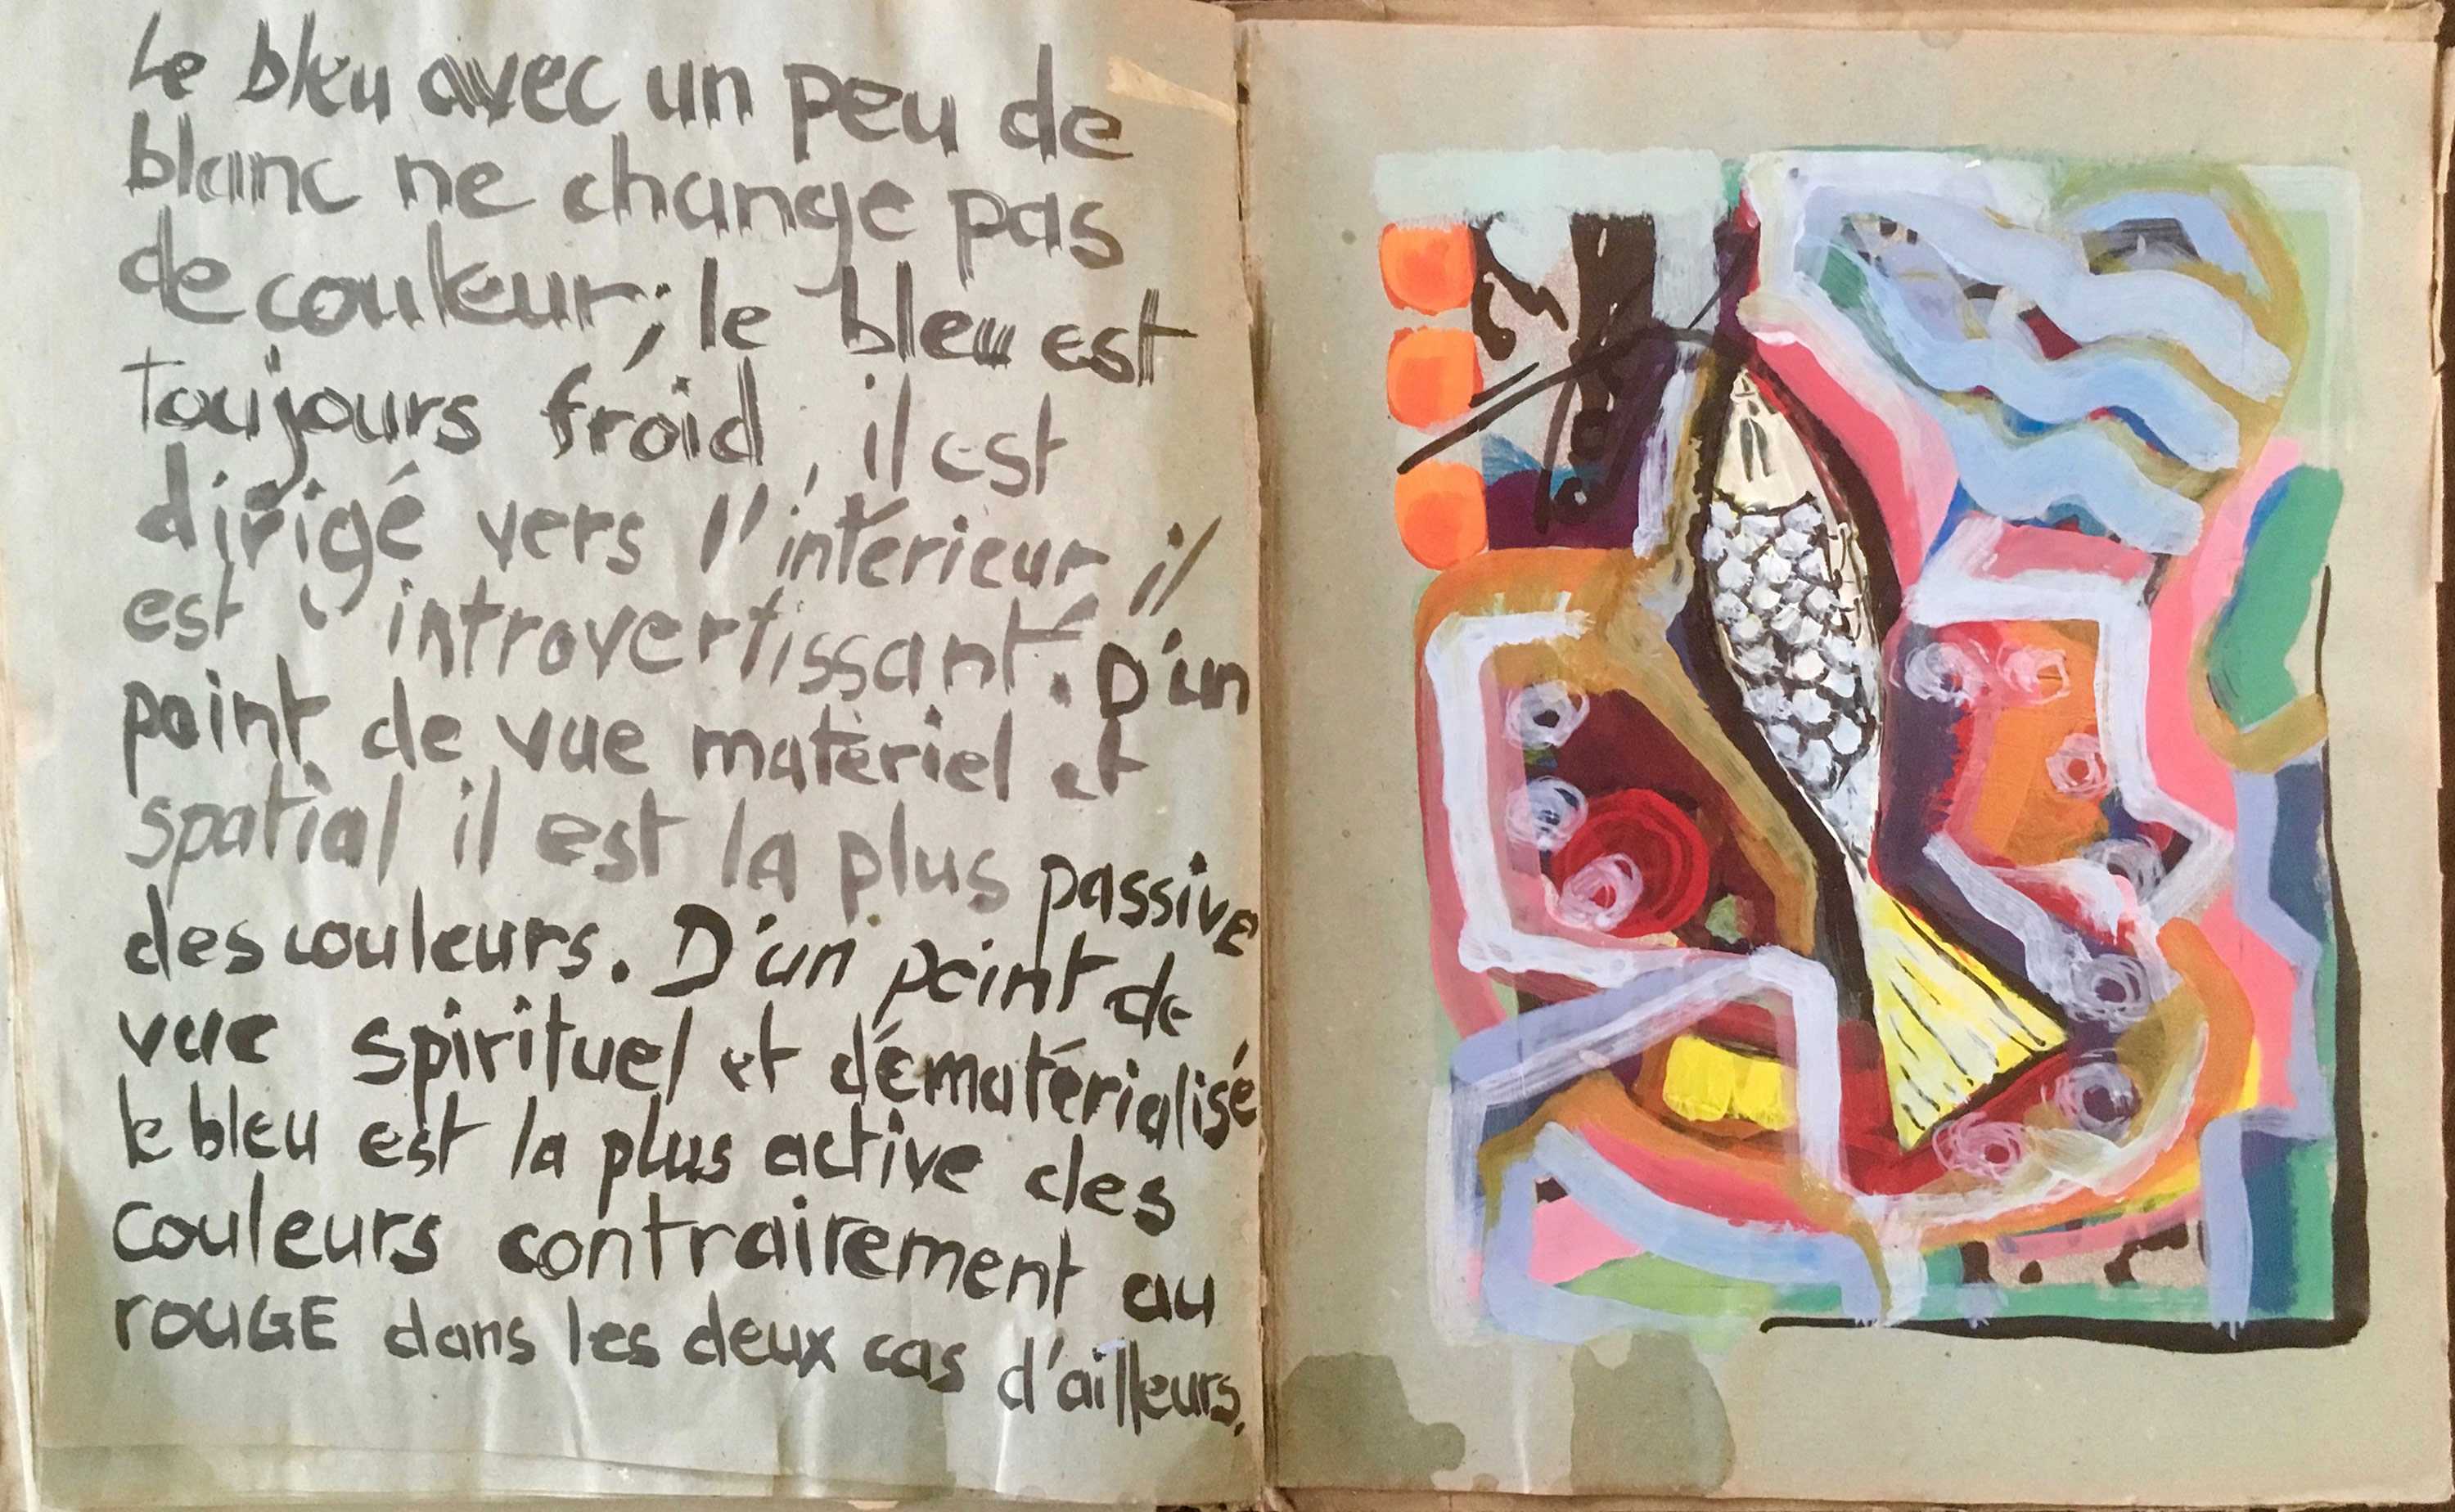 Le bleu avec un peu de
blanc ne change pas
de couleur; le bleu est
toujours froid, il est
dirigé vers l'intérieur il
est introvertissant. D'un
point de vue matériel et
spatial il est la plus passive
des couleurs. D'un point de
vue spirituel et dématérialisé
le bleu est la plus active des
couleurs contrairement au
ROUGE dans les deux cas d'ailleurs.